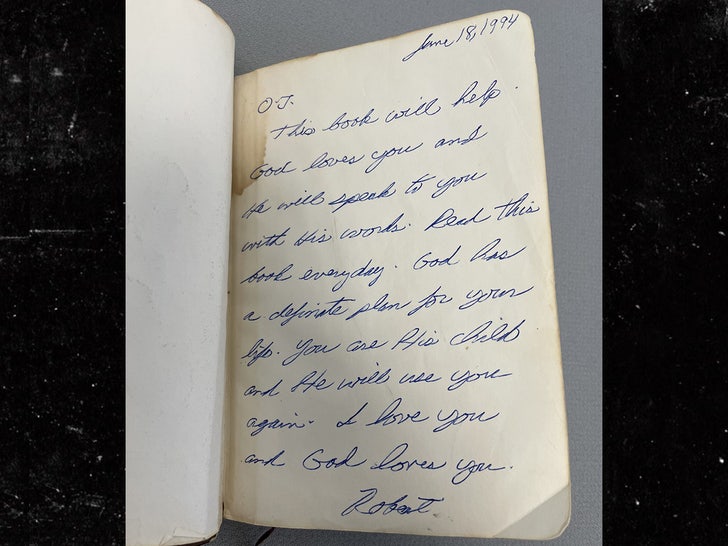 June 18, 1994
O.J.
This book will help.
God loves you and
He will speak to you
with His words. Read this
book everyday. God has
a definite plan for your
life. You are His child
and He will use you
again. I love you
and God loves you.
Robert